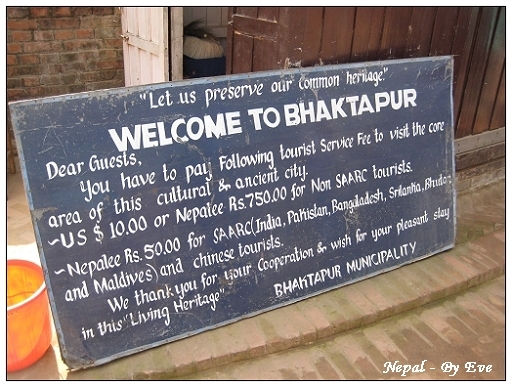 "Let us preserve our common heritage."
WELCOME TO BHAKTAPUR
Dear Guests,
You have to pay Following tourist Service Fee to visit the core
area of this cultural & ancient city.
~US $ 10.00 or Nepalee Rs.750.00 for Non SAARC tourists.
~Nepalee Rs. 50.00 for SAARC(India, Pakistan, Bangladesh, Srilanka, Bhutan
and Maldives) and chinese tourists.
We thank you for your Cooperation & wish for your pleasant stay
in this "Living Heritage"
BHAKTAPUR MUNICIPALITY
Nepal - By Eve